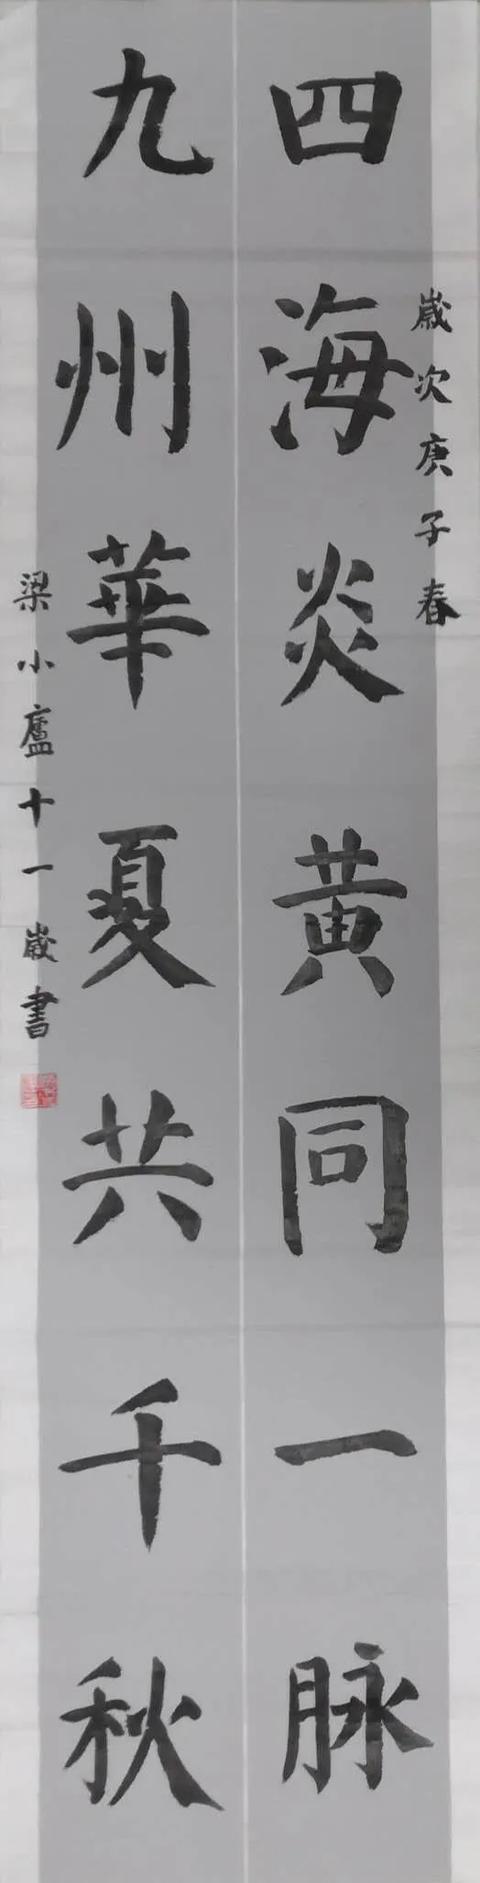 歲次庚子春
四海炎黃同一脉
九州華夏共千秋
梁小廬十一歲書